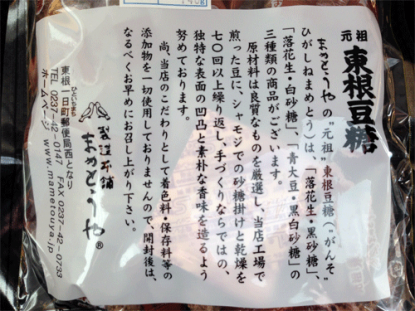 元祖 東根豆糖
まめとうやの"元祖"東根豆糖(がんそ
ひがしねまめとう)は、「落花生・黒砂糖」、
「落花生・白砂糖」、「青大豆・黒白砂糖」の
三種類の商品がございます。
原材料は良質なものを厳選し、当店工場で
煎った豆に、シャモジでの砂糖掛けと乾燥を
七〇回以上繰り返し、手づくりならではの、
独特な表面の凹凸と素朴な香味を造るよう
努めております。
尚、当店のこだわりとして着色料・保存料等の
添加物を一切使用しておりませんので、開封後は、
なるべくお早めにお召し上がり下さい。
製造本舗
まめとうや®
東根 一日町郵便局西となり
ひといちまち
TEL 0237-42-0147 FAX 0237-42-0733
ホームページ www.mametouya.jp